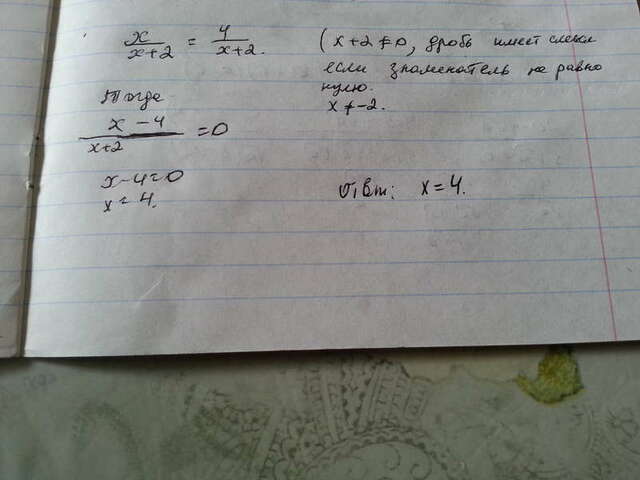 x/(x+2) = 4/(x+2). (x+2≠0, дробь имеет смысл
если знаменатель не равно
нулю.
x≠-2.
Тогда
(x-4)/(x+2) = 0
x-4=0
x=4.
Ответ: x=4.